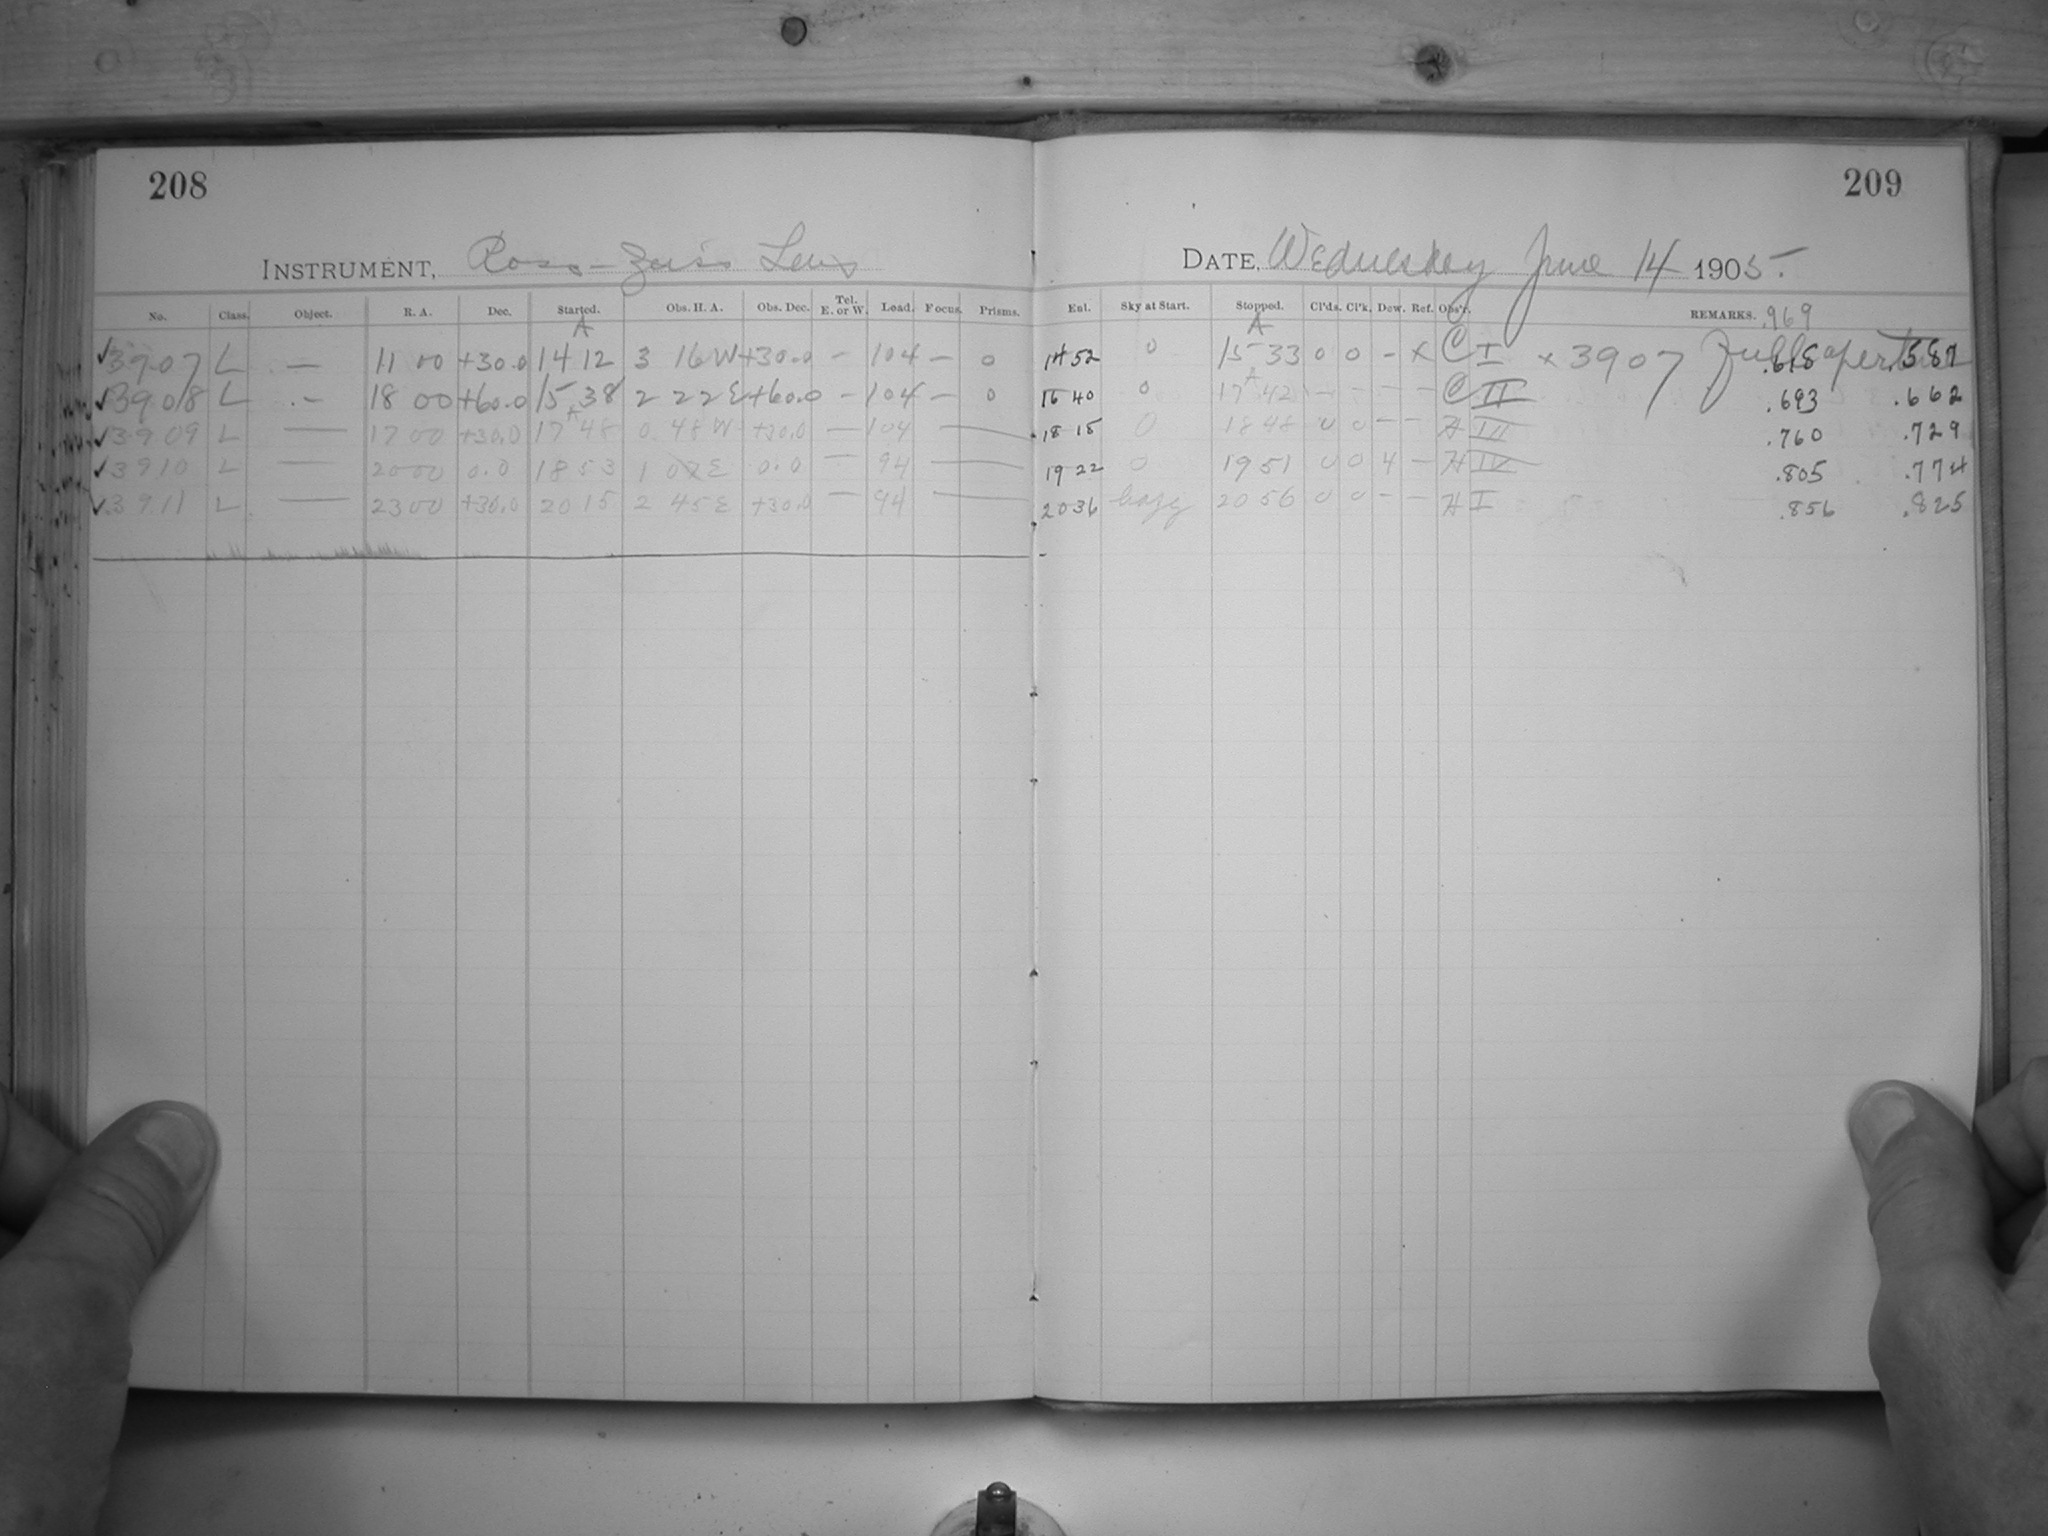 208
209
INSTRUMENT, Ross-Zeiss Lens
DATE, Wednesday June 14 1905.
No. Class. Object. R. A. Dec. Started. Obs. H. A. Obs. Dec. Tel. E. or W. Load. Focus. Prisms. Ent. Sky at Start. Stopped. Cl'ds. Cl'k. Dew. Ref. Obs'r. REMARKS. .969
A A
✓3907 L — 11 00 +30.0 14 12 3 16 W +30.0 — 104 — 0 14 52 0 15 33 0 0 — x C I x 3907 Full aperture .618 .587
✓3908 L — 18 00 +60.0 15 38 2 22 E +60.0 — 104 — 0 16 40 0 17 42 — — — — C II .693 .662
✓3909 L — 17 00 +30.0 17 48 0 48 W +30.0 — 104 — 18 15 0 18 48 0 0 — — H III .760 .729
✓3910 L — 20 00 0.0 18 53 1 07 E 0.0 — 94 — 19 22 0 19 51 0 0 4 — H IV .805 .774
✓3911 L — 23 00 +30.0 20 15 2 45 E +30.0 — 94 — 20 36 hazy 20 56 0 0 — — H I .856 .825